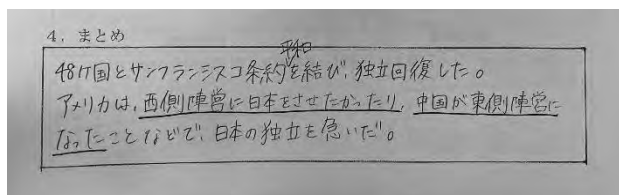 4. まとめ
平和
48ヶ国とサンフランシスコ条約を結び、独立回復した。
アメリカは、西側陣営に日本をさせたかったり、中国が東側陣営に
なったことなどで、日本の独立を急いだ。